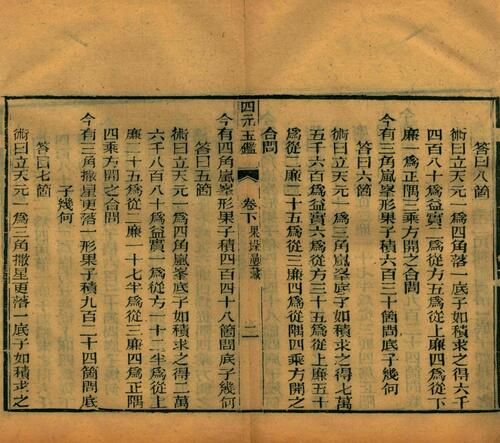 答曰八箇
術曰立天元一爲四角落一底子如積求之得六千
四百八十爲益實二爲從方五爲從上廉四爲從下
廉一爲正隅三乘方開之合問
今有三角嵐峯形果子積六百三十箇問底子幾何
答曰六箇
術曰立天元一爲三角嵐峯底子如積求之得七萬
五千六百爲益實六爲從方三十五爲從上廉五十
爲從二廉二十五爲從三廉四爲從隅四乘方開之
合問
四元玉鑑
卷下 果垛疊藏
二
今有四角嵐峯形果子積四百四十八箇問底子幾何
答曰五箇
術曰立天元一爲四角嵐峯底子如積求之得二萬
六千八百八十爲益實一爲從方一十二半爲從上
廉二十五爲從二廉一十七半爲從三廉四爲正隅
四乘方開之合問
今有三角撒星更落一形果子積九百二十四箇問底
子幾何
答曰七箇
術曰立天元一爲三角撒星更落一底子如積求之